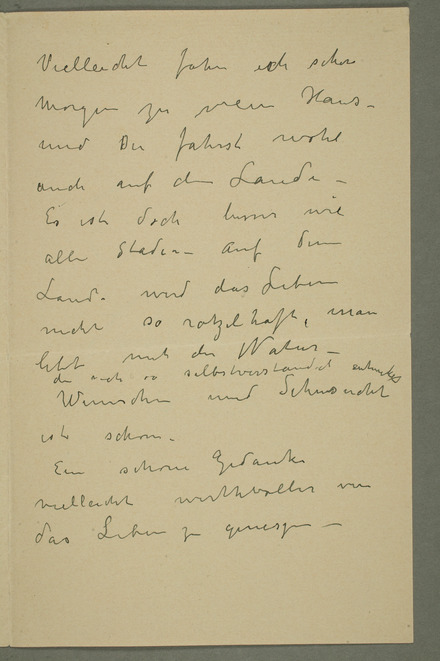 Vielleicht fahre ich schon
morgen zu mein Haus -
und Du fährst wohl
auch auf dem Lande -
Es ist doch besser wie
alle Städe - auf dem
Land. wird das Leben
nicht so rätzelhaft, man
lebt mit der Natur -
die auch so selbstverständlich
Wünschen und Sehnsucht
ist schön -
Ein schöne Gedanke
vielleicht werthvoller
das Leben zu -